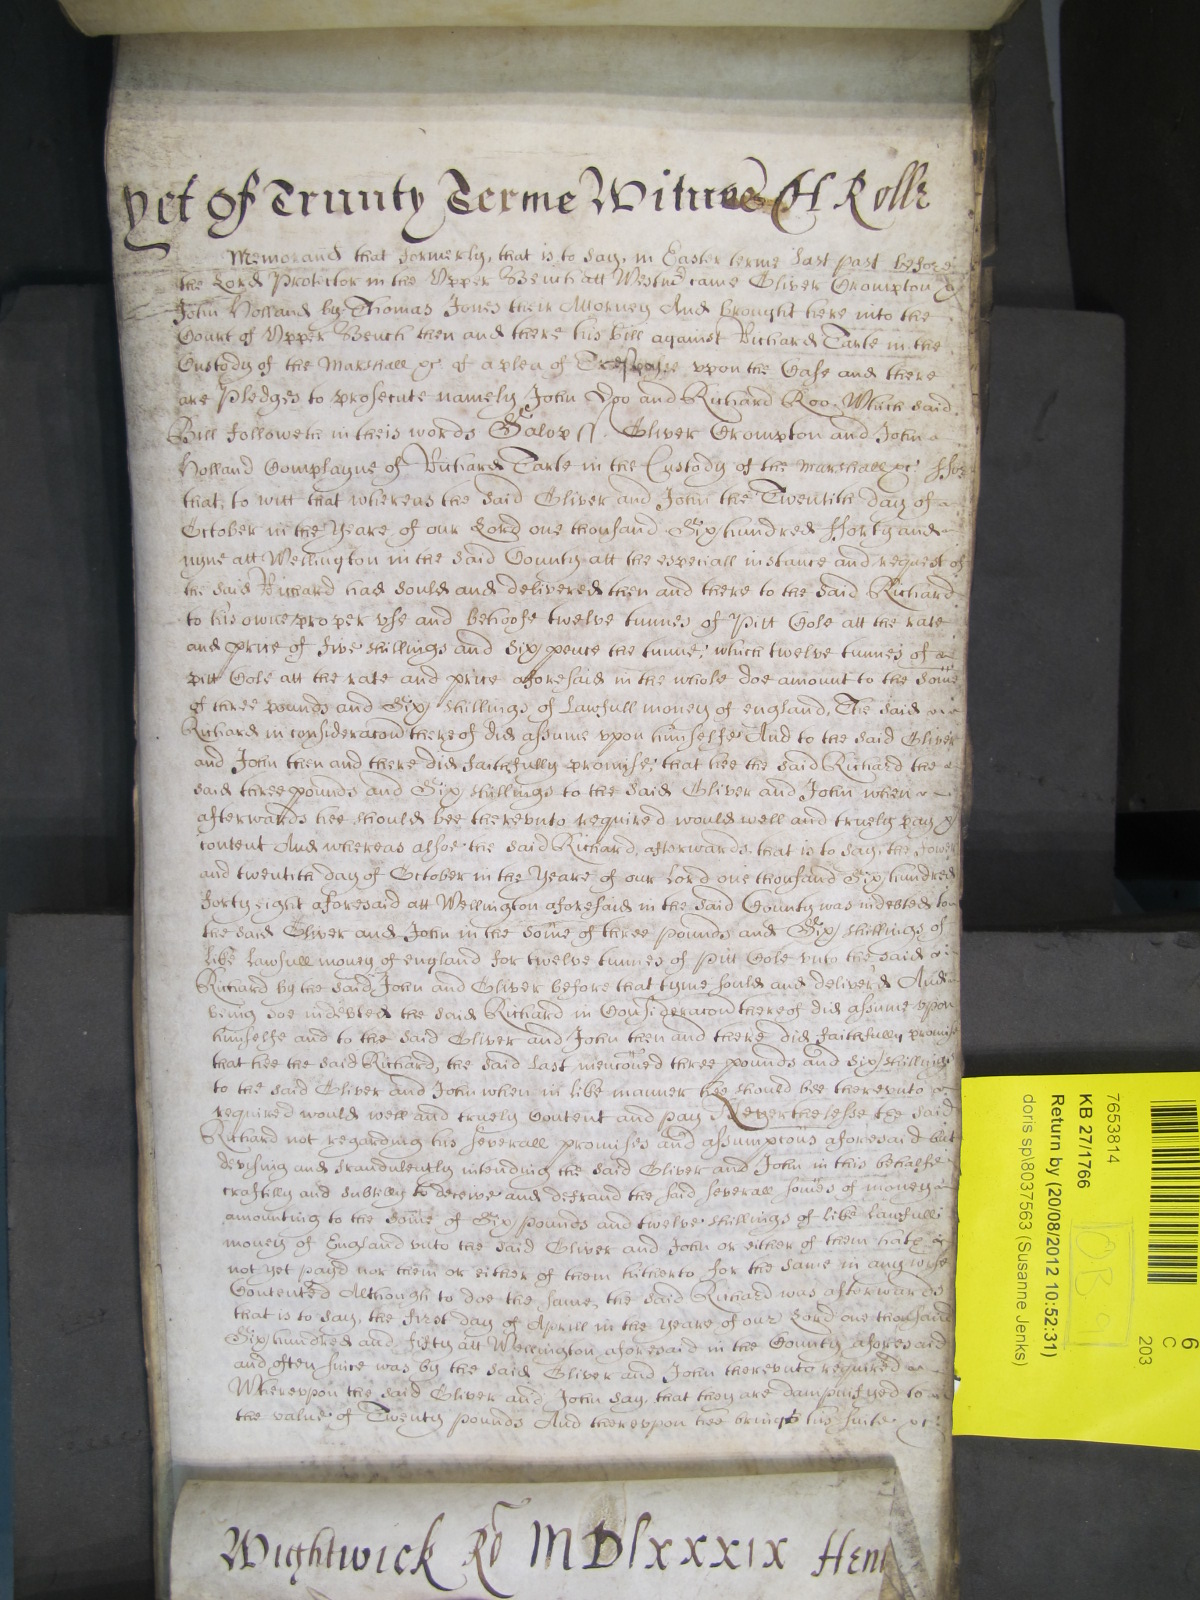 yet of Trinity Terme Witnes H Rolle
Memorand that formerly, that is to say, in Easter terme last past before
the Lord Protector in the Upper Bench att Westmr came Oliver Crompton &
John Holland by Thomas Jones their Attorney And brought here into the
Court of Upper Bench then and there his bill against Richard Tarte in the
Custody of the Marshall &c of a plea of Trespasse upon the Case and there
are Pledges to prosecute namely John Doo and Richard Roo. Which said
Bill followeth in theis words Salop ss. Oliver Crompton and John
Holland Complayne of Richard Tarte in the Custody of the Marshall &c: ffor
that, to witt that whereas the said Oliver and John the Twentith day of
October in the Yeare of our Lord one thousand Six hundred fforty and
nyne att Wellington in the said County att the especiall instance and request of
the said Richard had sould and delivered then and there to the said Richard
to his owne proper use and behoofe twelve tunnes of Pitt Cole att the rate
and price of five shillings and Six pence the tunne, which twelve tunnes of
pitt Cole att the rate and price aforesaid in the whole doe amount to the some
of three pounds and Six shillings of Lawfull money of england, The said
Richard in consideracon thereof did assume upon himselfe And to the said Oliver
and John then and there did faithfully promise, that hee the said Richard the
said three pounds and Six shillings to the said Oliver and John when
afterwards hee should bee thereunto required would well and truely pay &
content And whereas alsoe the said Richard, afterwards, that is to say, the fower
and twentith day of October in the Yeare of our Lord one thousand Six hundred
forty eight aforesaid att Wellington aforesaid in the said County was indebted to
the said Oliver and John in the some of three pounds and Six shillings of
like lawfull money of england for twelve tunnes of Pitt Cole unto the said
Richard by the said John and Oliver before that tyme sould and deliver'd And
being soe indebted the said Richard in Consideracon thereof did assume upon
himselfe and to the said Oliver and John then and there did faithfully promise
that hee the said Richard, the said last menconed three pounds and six shillings
to the said Oliver and John when in like manner hee should bee thereunto
required would well and truely Content and pay Neverthelesse the said
Richard not regarding his severall promises and assumpcons aforesaid but
devising and fraudulently intending the said Oliver and John in this behalfe
craftilly and subtilly to deceive and defraud the said severall somes of money
amounting to the some of Six pounds and twelve shillings of like lawfull
money of England unto the said Oliver and John or either of them hath
not yet payd nor them or either of them hitherto for the same in any wise
Contented Although to doe the same, the said Richard was afterwards
that is to say, the first day of Aprill in the Yeare of our Lord one thousand
Six hundred and fifty att Wellington aforesaid in the County aforesaid
and often since was by the said Oliver and John thereunto required
Whereupon the said Oliver and John say, that they are dampnifyed to
the value of Twenty pounds And thereupon hee brings his suite &c:
Wightwick Ro MDlxxxix Hen
7653814
KB 27/1766
Return by (20/08/2012 10:52:31)
doris sp\8037563 (Susanne Jenks)
6
C
203